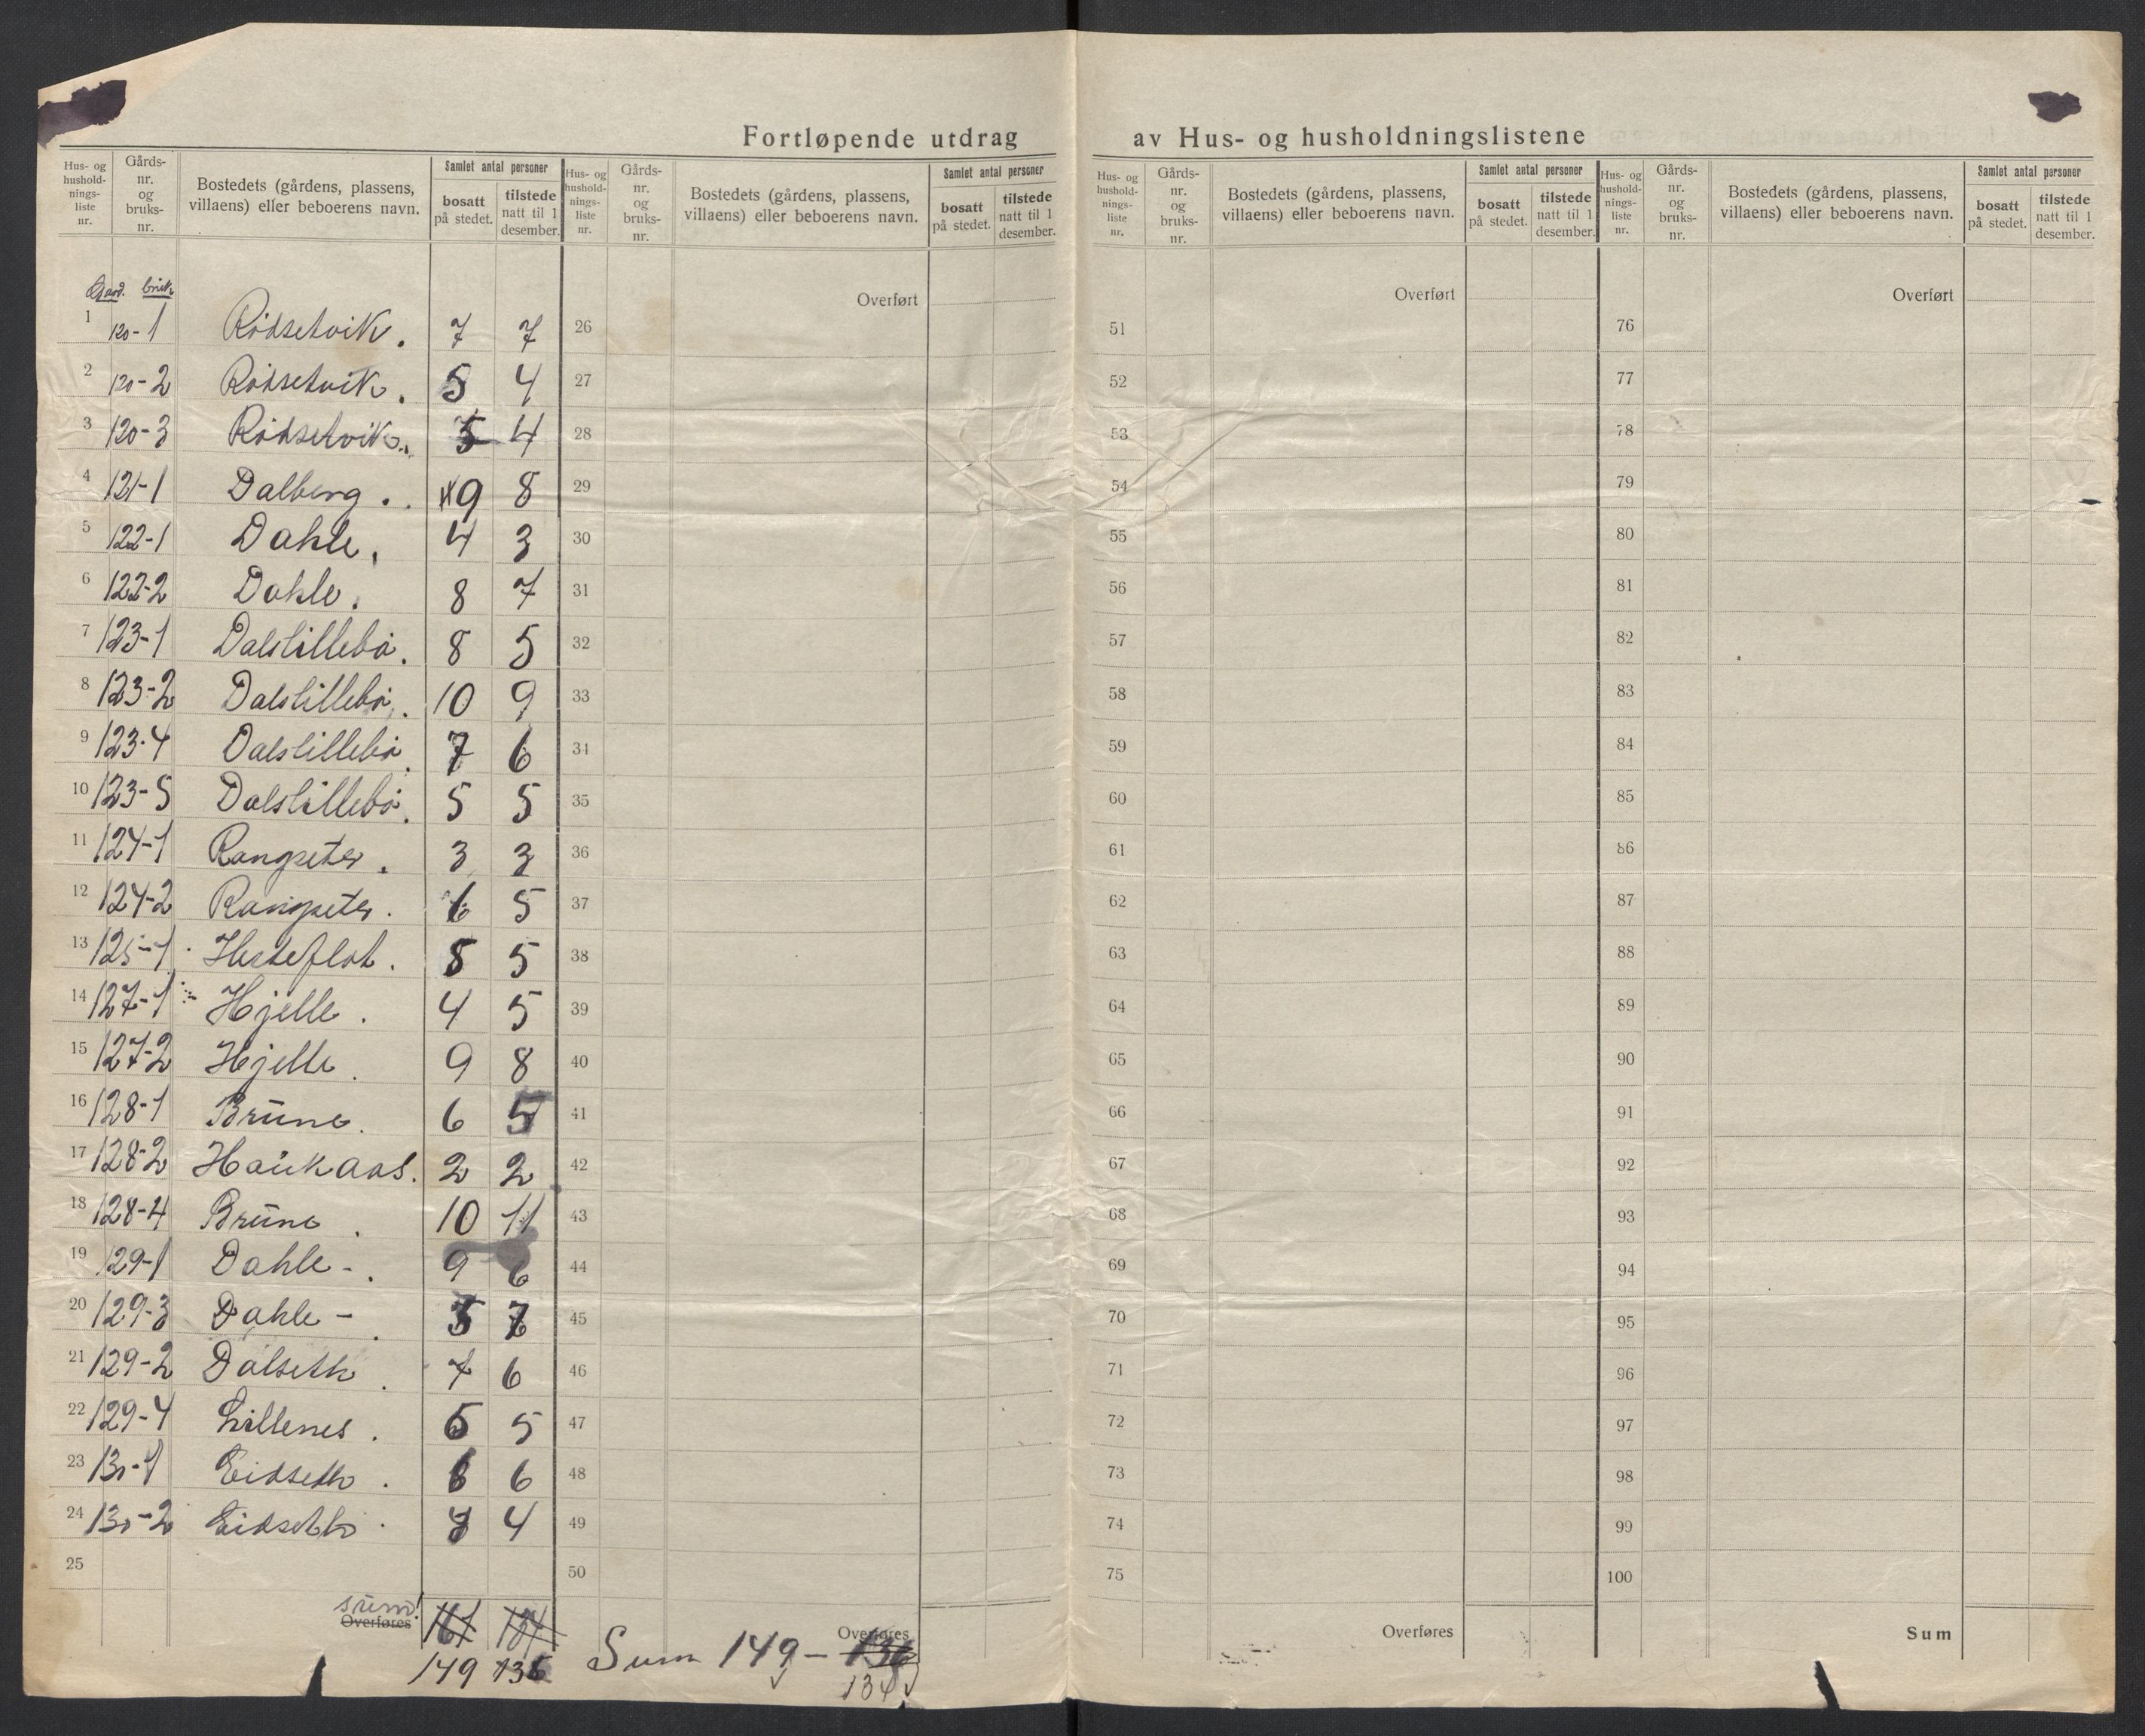 Fortløpende utdrag av Hus- og husholdningslistene
Hus- og hushold-nings-liste nr. Gårds-nr. og bruks-nr. Bostedets (gårdens, plassens, villaens) eller beboerens navn. Samlet antal personer bosatt på stedet. tilstede natt til 1 desember.
Hus- og hushold-nings-liste nr. Gårds-nr. og bruks-nr. Bostedets (gårdens, plassens, villaens) eller beboerens navn. Samlet antal personer bosatt på stedet. tilstede natt til 1 desember.
Hus- og hushold-nings-liste nr. Gårds-nr. og bruks-nr. Bostedets (gårdens, plassens, villaens) eller beboerens navn. Samlet antal personer bosatt på stedet. tilstede natt til 1 desember.
Hus- og hushold-nings-liste nr. Gårds-nr. og bruks-nr. Bostedets (gårdens, plassens, villaens) eller beboerens navn. Samlet antal personer bosatt på stedet. tilstede natt til 1 desember.
Gard. bruk
Overført Overført Overført
1 120-1 Rödsetvik. 7 7 26 51 76
2 120-2 Rödsetvik. 5 4 27 52 77
3 120-3 Rödsetvik. 4 28 53 78
4 121-1 Dalberg. 9 8 29 54 79
5 122-1 Dahle. 4 3 30 55 80
6 122-2 Dahle. 8 7 31 56 81
7 123-1 Dalslillebö. 8 5 32 57 82
8 123-2 Dalslillebö. 10 9 33 58 83
9 123-4 Dalslillebö. 7 6 34 59 84
10 123-5 Dalslillebö. 5 5 35 60 85
11 124-1 Rangseter. 3 3 36 61 86
12 124-2 Rangseter. 6 5 37 62 87
13 125-1 Hesteflot. 5 38 63 88
14 127-1 Hjelle. 4 5 39 64 89
15 127-2 Hjelle. 9 8 40 65 90
16 128-1 Brune. 6 5 41 66 91
17 128-2 Haukaas. 2 2 42 67 92
18 128-4 Brune. 10 11 43 68 93
19 129-1 Dahle-. 9 6 44 69 94
20 129-3 Dahle-. 7 45 70 95
21 129-2 Dalseth. 7 6 46 71 96
22 129-4 Lillenes. 5 47 72 97
23 130-1 Eidseth. 6 6 48 73 98
24 130-2 Eidseth. 4 49 74 99
25 50 75 100
sum! Overføres 161 Overføres Overføres Sum
149 135 Sum 149 - 136
134